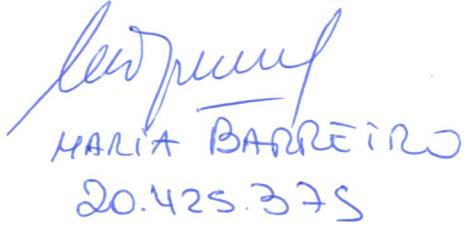 MARIA BARREIRO
20.425.375